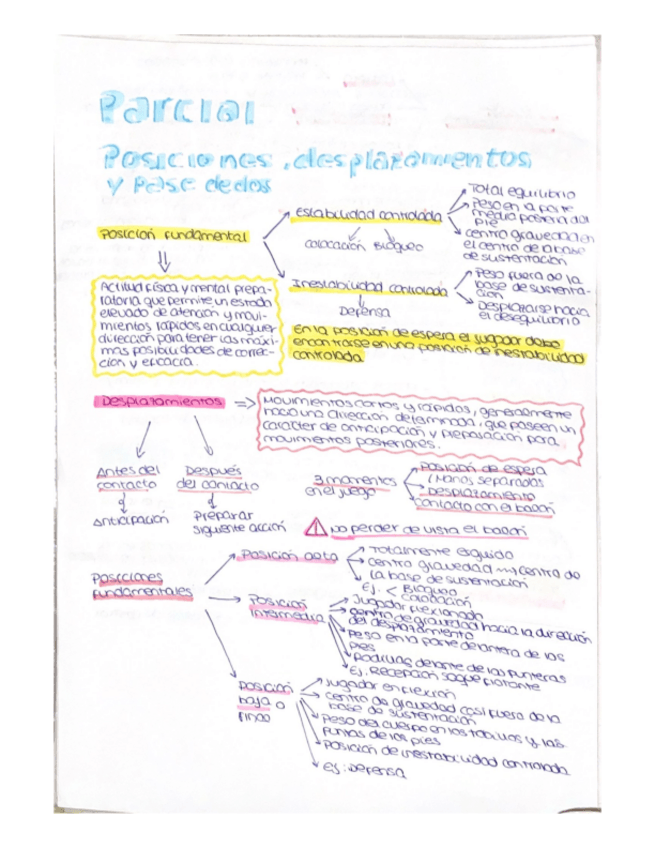 Parcial
Posiciones, desplazamientos
y pase de dedos
Posición fundamental
Actitud física y mental prepa-
ratoria que permite un estado
elevado de atención y movi-
mientos rápidos en cualquier
dirección para tener las máxi-
mas posibilidades de correc-
ción y eficacia.
Estabilidad controlada
colocación Bloqueo
Total equilibrio
Peso en la parte
media posterior del
pie
centro gravedad en
el centro de la base
de sustentación
Inestabilidad controlada
Defensa
Peso fuera de la
base de sustenta-
ción
Desplazarse hacia
el desequilibrio
En la posición de espera el jugador debe
encontrarse en una posición de inestabilidad
controlada
Desplazamientos
Movimientos cortos y rápidos, generalmente
hacia una dirección determinada, que poseen un
carácter de anticipación y preparación para
movimientos posteriores.
Antes del
contacto
Anticipación
Después
del contacto
Preparar
siguiente acción
3 momentos
en el juego
Posición de espera
(Manos separadas
Desplazamiento
Contacto con el balón
No perder de vista el balón
Posiciones
fundamentales
Posición alta
Totalmente erguido
Centro gravedad centro de
la base de sustentación
Ej. < Bloqueo
colocación
Posición
intermedia
Jugador flexionado
centro de gravedad hacia la dirección
del desplazamiento
Peso en la parte delantera de los
pies
Rodillas delante de las punteras
Ej. Recepción saque flotante
Posición
baja o
finao
Jugador en flexión
centro de gravedad casi fuera de la
base de sustentación
Peso del cuerpo en los tobillos y las
puntas de los pies
Posición de inestabilidad controlada
Ej: Defensa